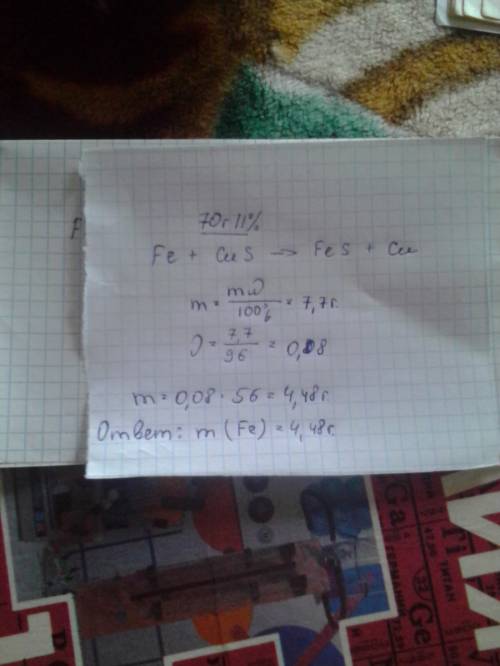 70г 11%
Fe + CuS → FeS + Cu
m = mω/100% = 7,7г.
ν = 7,7/96 = 0,08
m = 0,08 · 56 = 4,48г.
Ответ: m (Fe) = 4,48г.
Ga
Ti
ТИТАН
32
Ge